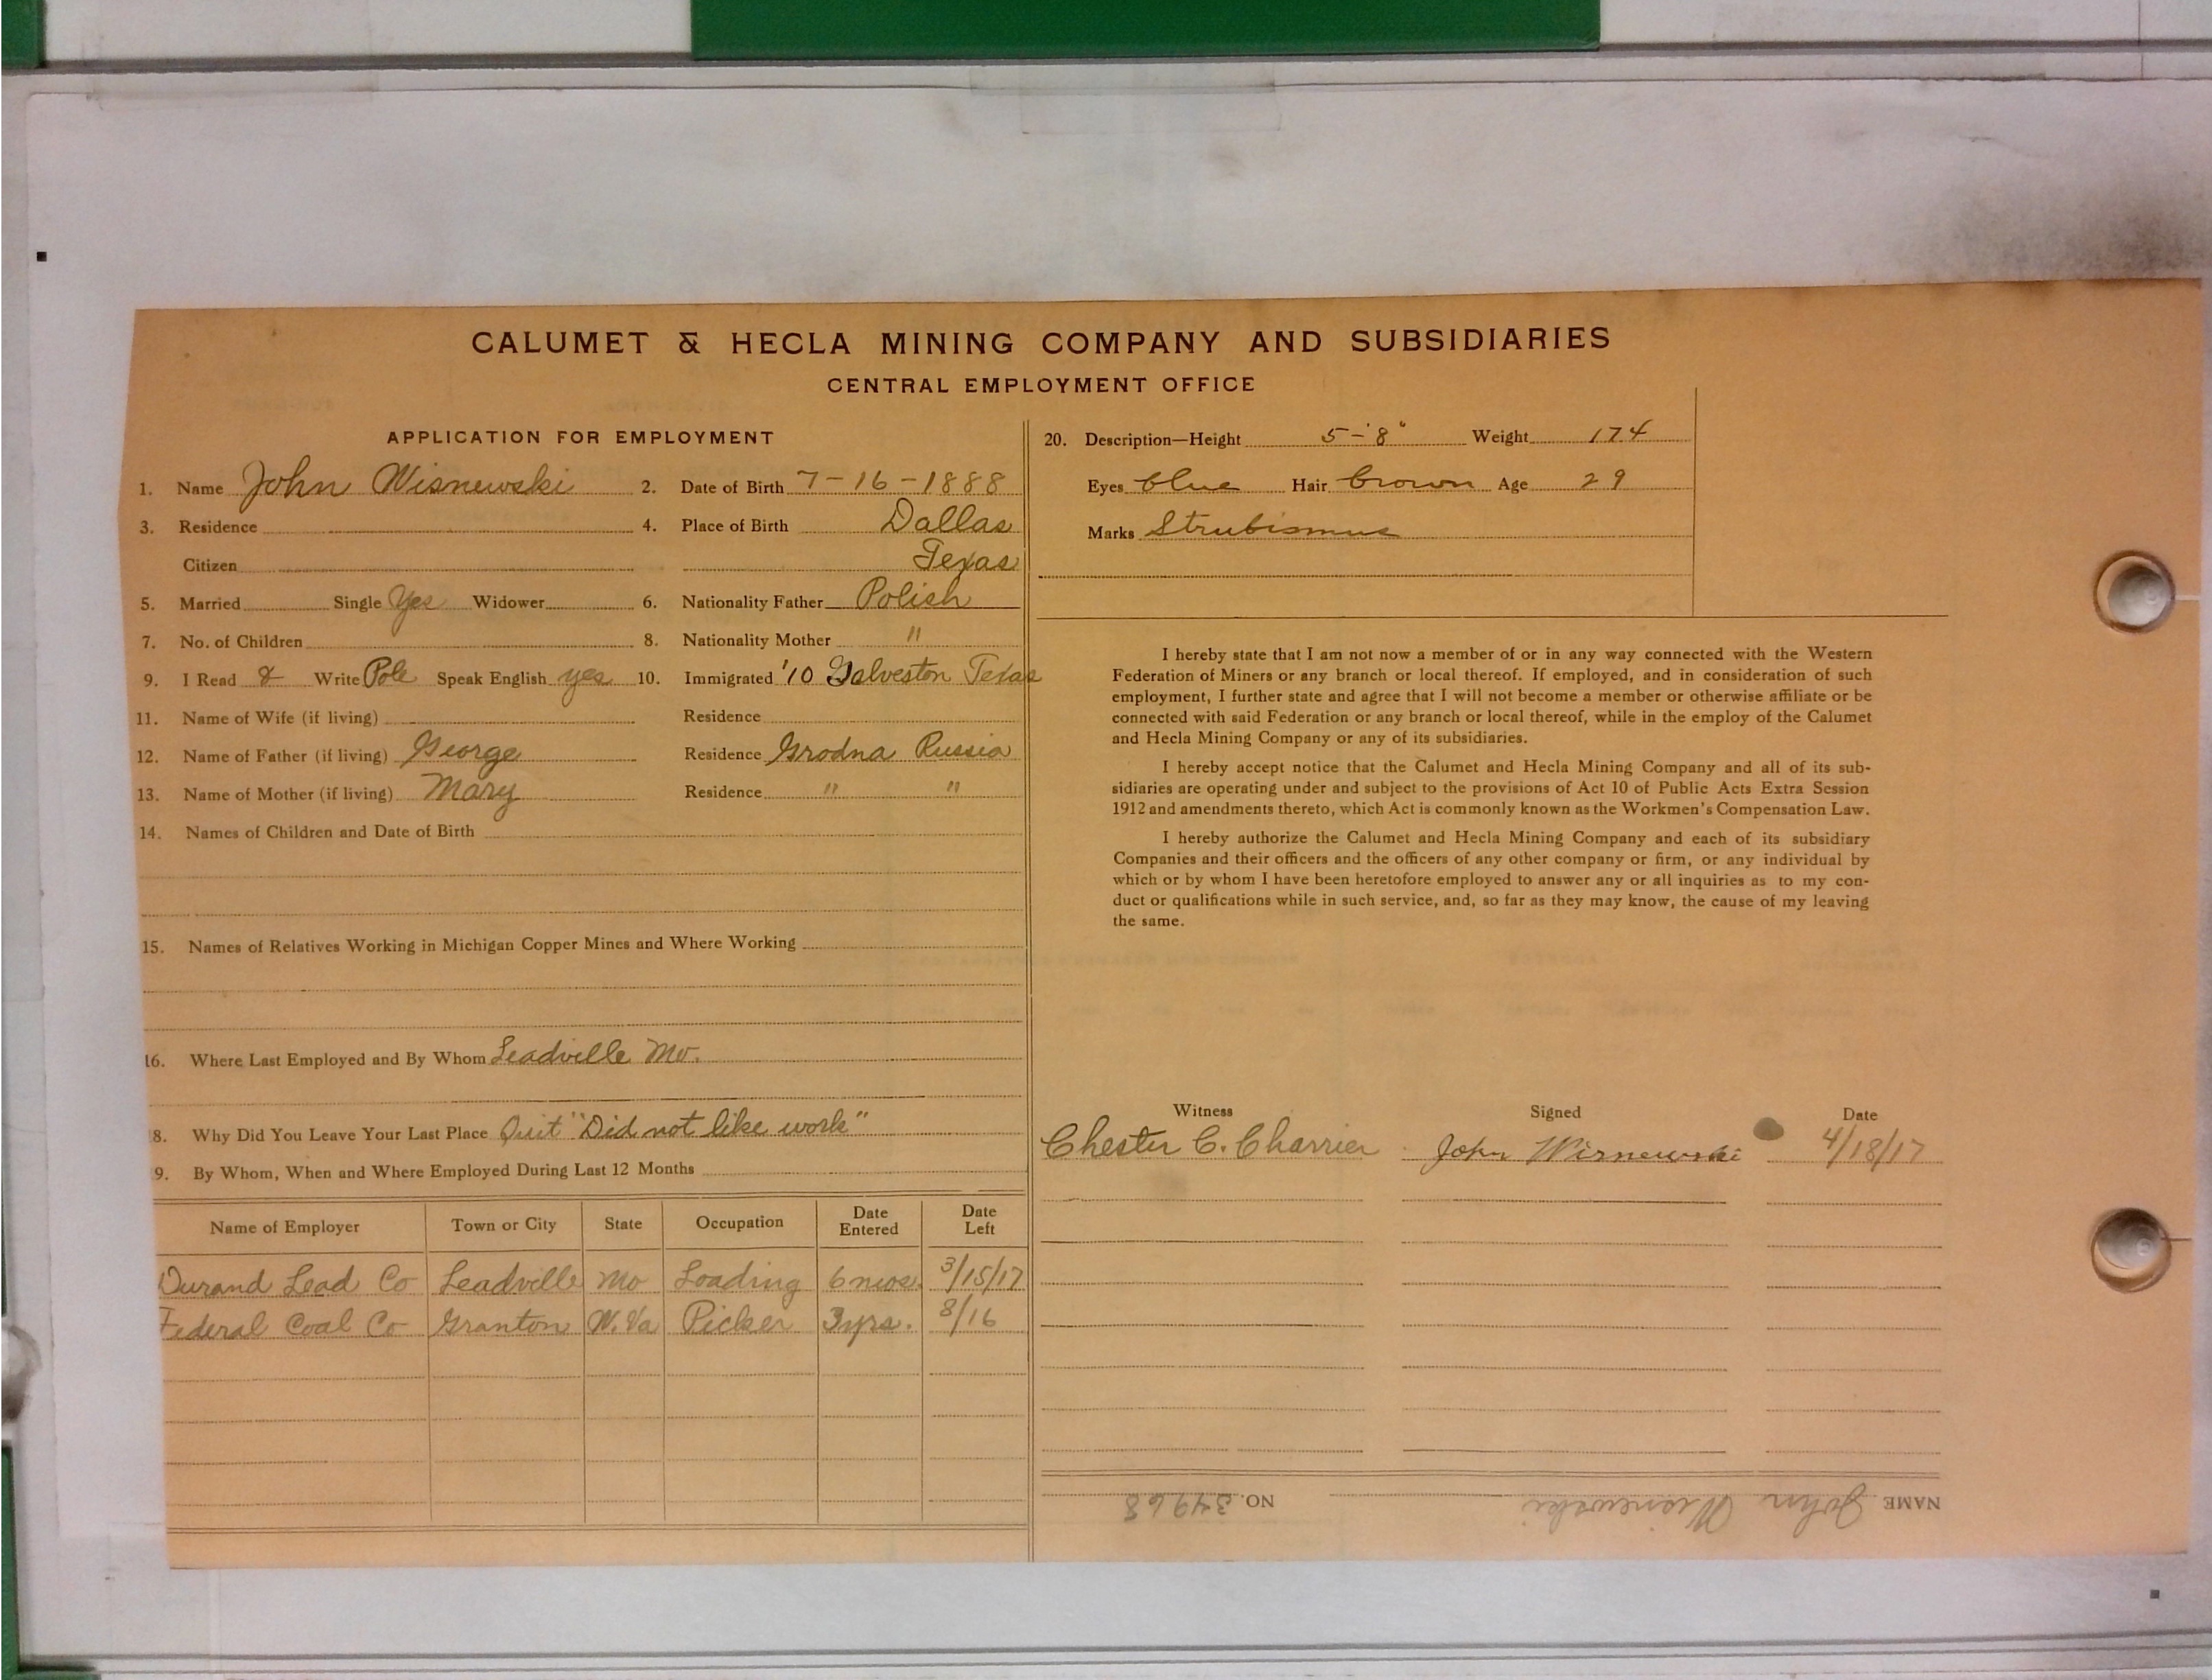 CALUMET & HECLA MINING COMPANY AND SUBSIDIARIES
CENTRAL EMPLOYMENT OFFICE
APPLICATION FOR EMPLOYMENT
1. Name John Wisnewski 2. Date of Birth 7-16-1888
3. Residence 4. Place of Birth Dallas
Citizen Texas
5. Married Single Yes Widower 6. Nationality Father Polish
7. No. of Children 8. Nationality Mother "
9. I Read & Write Pole Speak English yes 10. Immigrated '10 Galveston Texas
11. Name of Wife (if living) Residence
12. Name of Father (if living) George Residence Grodna Russia
13. Name of Mother (if living) Mary Residence " "
14. Names of Children and Date of Birth
15. Names of Relatives Working in Michigan Copper Mines and Where Working
16. Where Last Employed and By Whom Leadville Mo.
8. Why Did You Leave Your Last Place Quit "Did not like work"
9. By Whom, When and Where Employed During Last 12 Months
Name of Employer Town or City State Occupation Date Entered Date Left
Durand Lead Co Leadville Mo Loading 6 mos. 3/15/17
Federal Coal Co Granton W. Va Picker 3 yrs. 8/16
20. Description—Height 5-'8" Weight 174
Eyes blue Hair brown Age 29
Marks Strubismus
I hereby state that I am not now a member of or in any way connected with the Western
Federation of Miners or any branch or local thereof. If employed, and in consideration of such
employment, I further state and agree that I will not become a member or otherwise affiliate or be
connected with said Federation or any branch or local thereof, while in the employ of the Calumet
and Hecla Mining Company or any of its subsidiaries.
I hereby accept notice that the Calumet and Hecla Mining Company and all of its sub-
sidiaries are operating under and subject to the provisions of Act 10 of Public Acts Extra Session
1912 and amendments thereto, which Act is commonly known as the Workmen's Compensation Law.
I hereby authorize the Calumet and Hecla Mining Company and each of its subsidiary
Companies and their officers and the officers of any other company or firm, or any individual by
which or by whom I have been heretofore employed to answer any or all inquiries as to my con-
duct or qualifications while in such service, and, so far as they may know, the cause of my leaving
the same.
Witness Signed Date
Chester C. Charrier John Wisnewski 4/18/17
NAME John Wisnewski NO. 34968